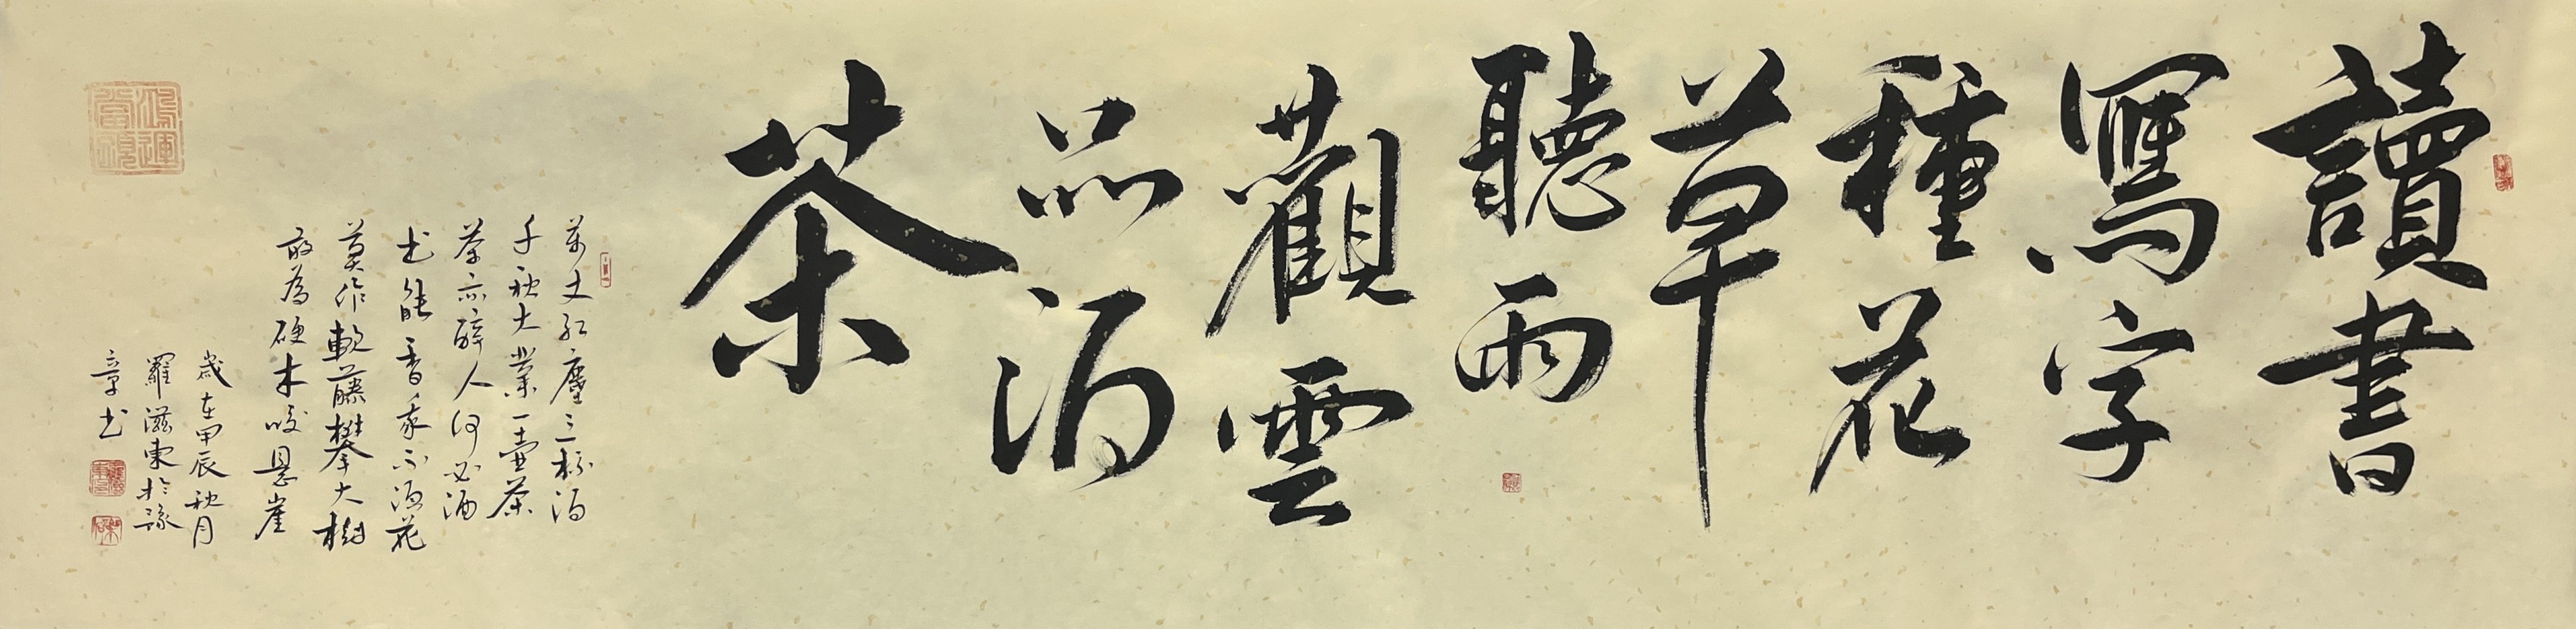 讀書
寫字
種花
草
聽雨
觀雲
品酒
茶
萬丈紅塵三杯酒
千秋大業一壺茶
茶亦醉人何必酒
书能香我不須花
莫作軟藤攀大樹
敢為硬木咬懸崖
歲在甲辰秋月
羅滋東於豫
章书
鴻運當頭